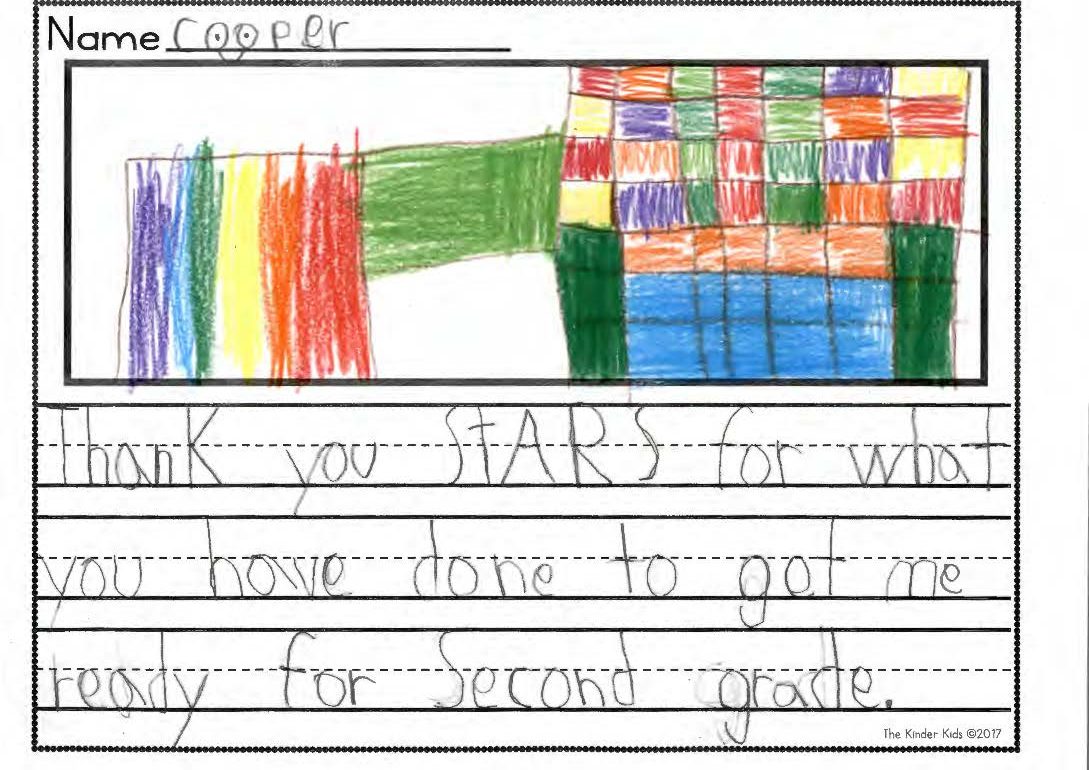 Name Cooper
Thank you STARS for what
you have done to get me
ready for Second grade.
The Kinder Kids ©2017